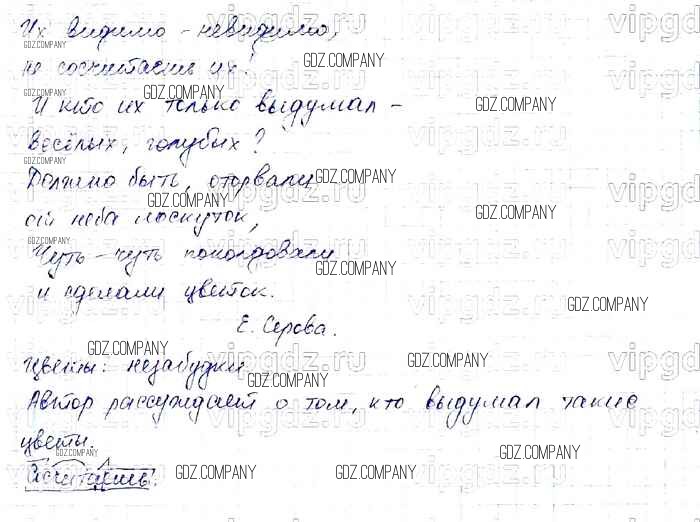 Их видимо - невидимо,
не сосчитаешь их!
И кто их только выдумал -
весёлых, голубых?
Должно быть, оторвали
от неба лоскуток,
Чуть - чуть поколдовали
и сделали цветок.
Е. Серова.
Цветы: незабудки
Автор рассуждает о том, кто выдумал такие
цветы.
Сосчитаешь.
GDZ.COMPANY
vipgdz.ru